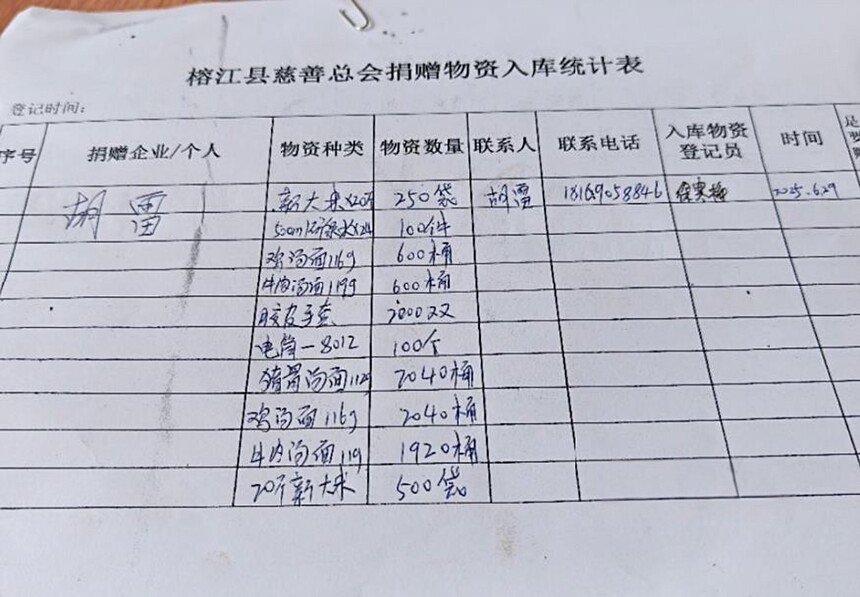 榕江县慈善总会捐赠物资入库统计表
登记时间:
序号 捐赠企业/个人 物资种类 物资数量 联系人 联系电话 入库物资登记员 时间
胡雷 新大米x20斤 250袋 胡雷 18169058846 2025.6.29
500ml矿泉水x24 100件
鸡汤面116g 600桶
牛肉汤面119g 600桶
胶皮手套 2000双
电筒-8012 100个
猪骨汤面112g 2040桶
鸡汤面116g 2040桶
牛肉汤面119 1920桶
20斤新大米 500袋